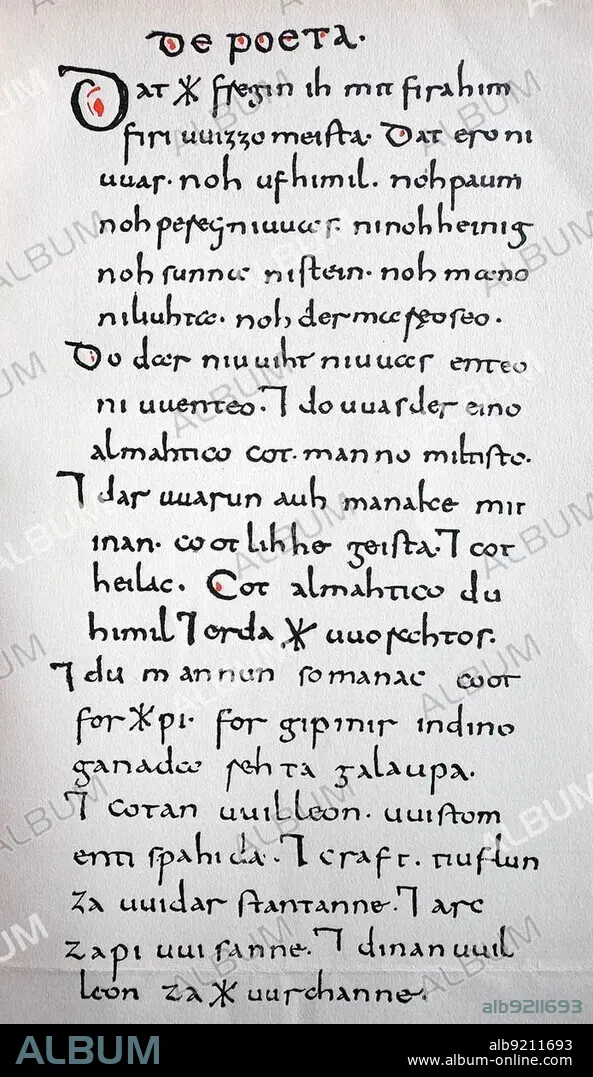 De poeta.
Dat * fregin ih mit firahim
firi uuizzo meista. Dat ero ni
uuas. noh ufhimil. noh paum
noh pereg niuuas. ninohheinig
noh sunna nistein. noh mano
niliuhta. noh der mareo seo.
Do dar niuuiht niuuas enteo
ni uuenteo. ⁊ do uuas der eino
almahtico cot. manno miltisto.
⁊ dar uuarun auh manake mit
inan. cootlihhe geista. ⁊ cot
heilac. Cot almahtico du
himil ⁊ erda * uuorachtos.
⁊ du mannun so manac coot
for * pi. for gipimir indino
ganada rehta galaupa.
⁊ cotan uuilleon. uuistom
enti spahida. ⁊ craft. tiuflun
za uuidar stantanne. ⁊ arc
za pi uuisanne. ⁊ dinan uuil
leon za * uurchanne.
ALBUM
alb9211693
ALBUM
alb9211693
www.album-online.com